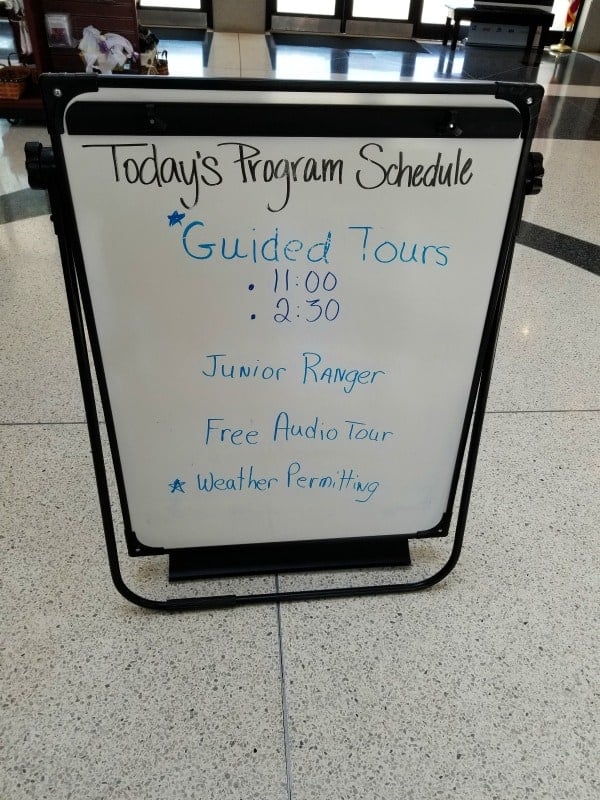 Today's Program Schedule
* Guided Tours
• 11:00
• 2:30
Junior Ranger
Free Audio Tour
* Weather Permitting